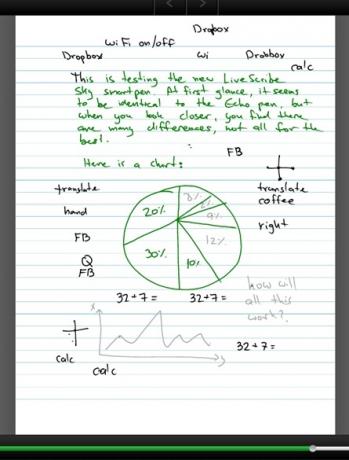 Drobox
WiFi on/off
Dropbox Wi Drobbox
calc
This is testing the new LiveScribe
Sky smartpen. At first glance, it seems
to be identical to the Echo pen, but
when you look closer, you find there
are many differences, not all for the
best.
FB
Here is a chart:
translate
translate
coffee
hand
right
FB
Q
FB
20%
8%
9%
12%
10%
30%
how will
all this
work?
32+7= 32+7=
x
y
32+7=
calc
calc